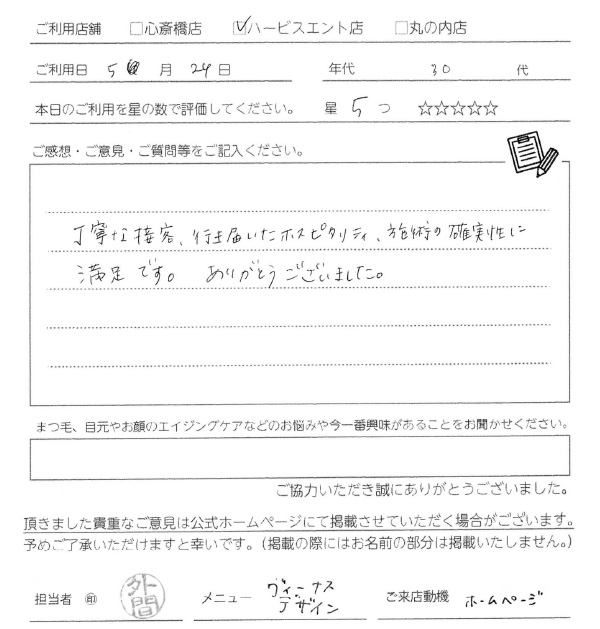 ご利用店舗 □心斎橋店 ☑ハービスエント店 □丸の内店
ご利用日 5 月 24日 年代 30 代
本日のご利用を星の数で評価してください。 星 5 つ ☆☆☆☆☆
ご感想・ご意見・ご質問等をご記入ください。
丁寧な接客、行き届いたホスピタリティ、施術の確実性に
満足です。 ありがとうございました。
まつ毛、目元やお顔のエイジングケアなどのお悩みや今一番興味があることをお聞かせください。
ご協力いただき誠にありがとうございました。
頂きました貴重なご意見は公式ホームページにて掲載させていただく場合がございます。
予めご了承いただけますと幸いです。(掲載の際にはお名前の部分は掲載いたしません。)
担当者 ㊞ 外間 メニュー ヴィーナスデザイン ご来店動機 ホームページ